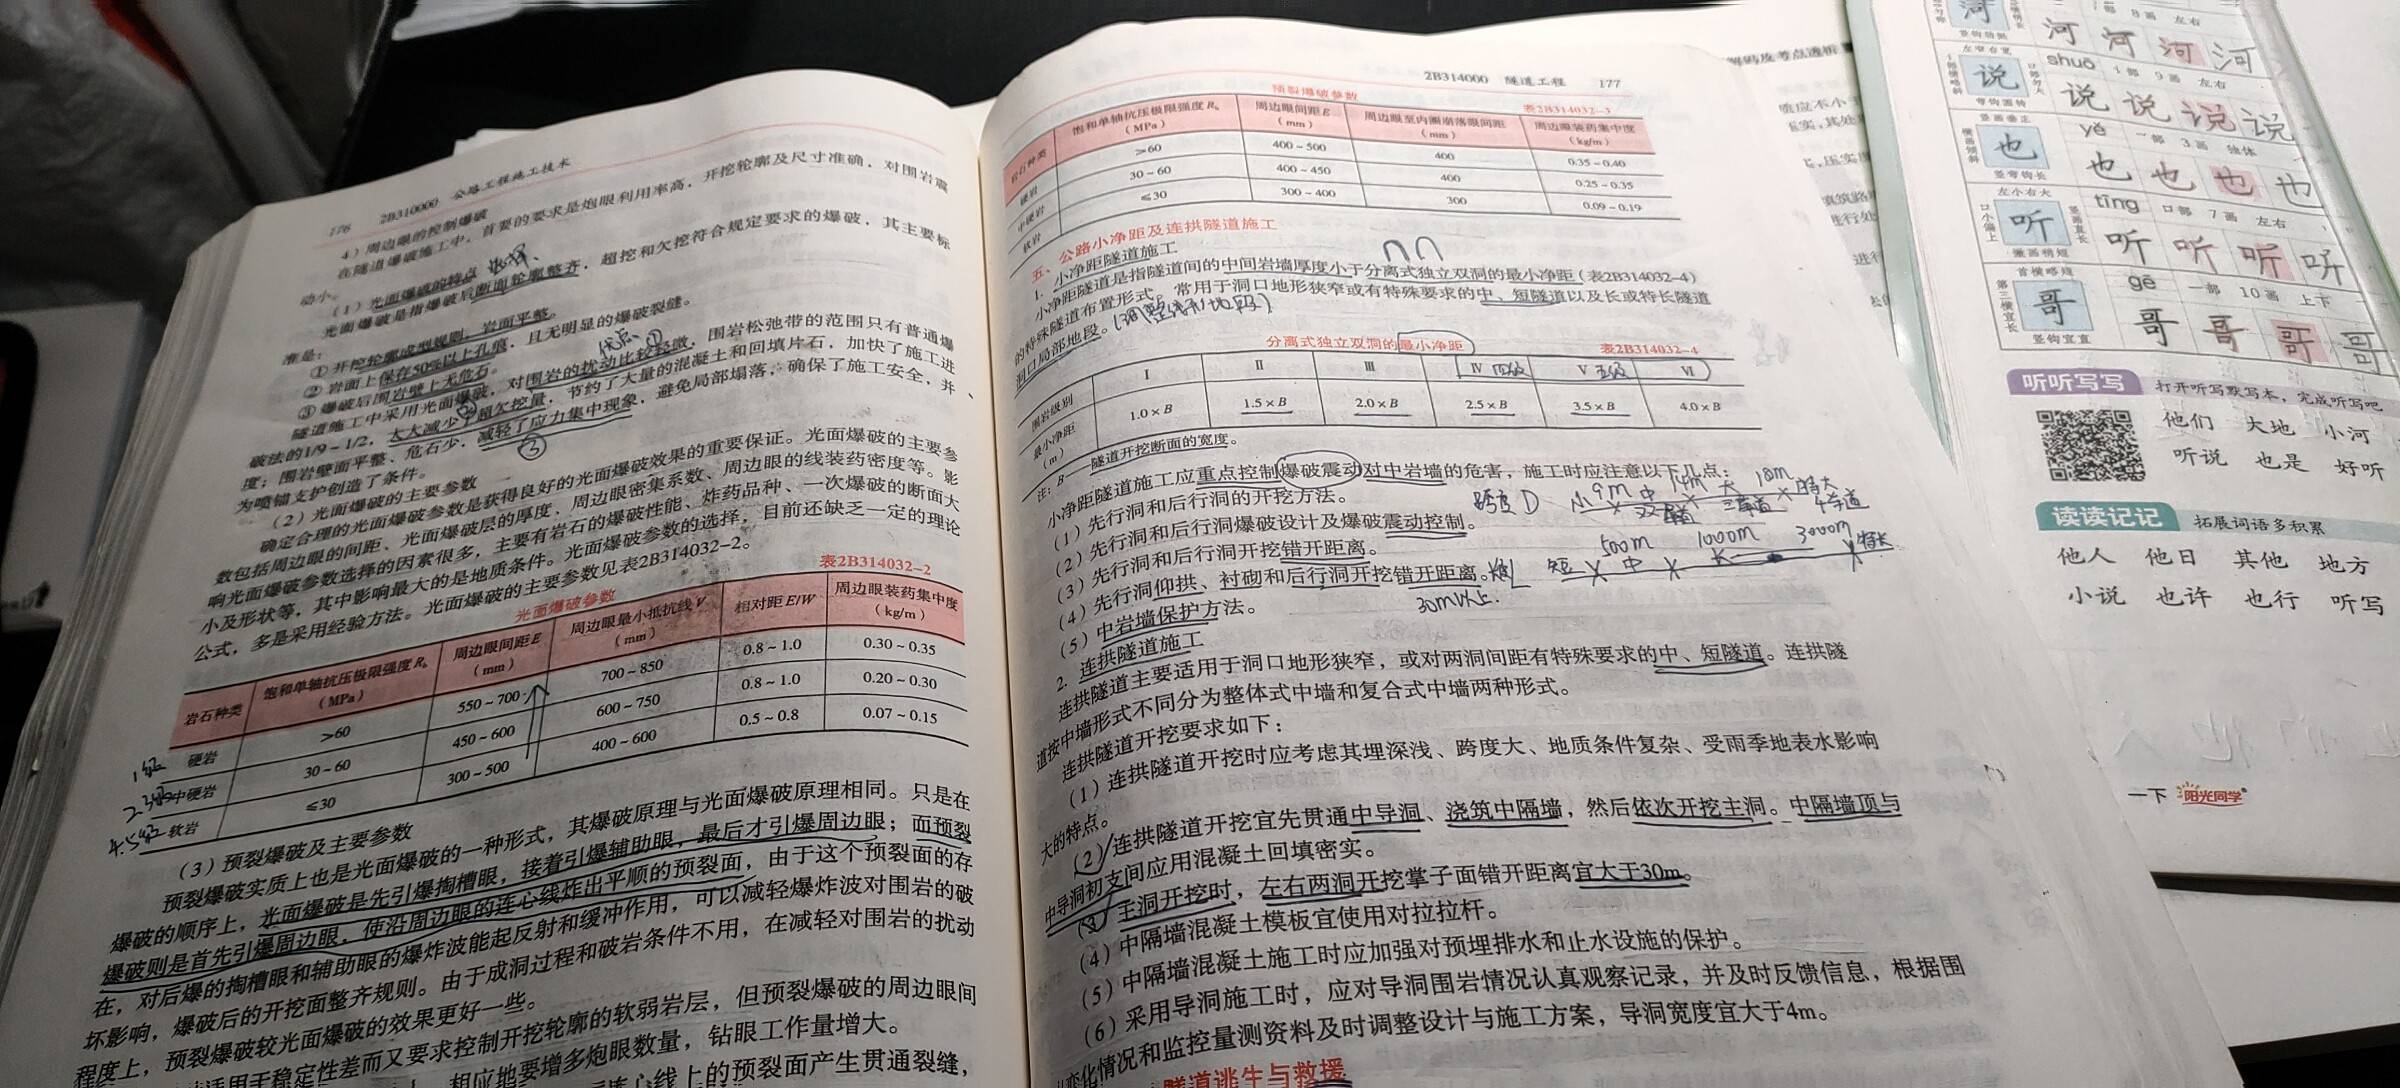 176 2B310000 公路工程施工技术
4)周边眼的控制爆破
在隧道爆破施工中,首要的要求是炮眼利用率高,开挖轮廓及尺寸准确,对围岩震
动小。
(1)光面爆破的特点
光面爆破是指爆破后断面轮廓整齐,超挖和欠挖符合规定要求的爆破,其主要标
准是:
①开挖轮廓成型规则,岩面平整。
②岩面上保存50%以上孔痕,且无明显的爆破裂缝。
③爆破后围岩壁上无危石。
优点①
隧道施工中采用光面爆破,对围岩的扰动比较轻微,围岩松弛带的范围只有普通爆
破法的1/9~1/2,大大减少了超欠挖量,节约了大量的混凝土和回填片石,加快了施工进
度;围岩壁面平整、危石少,减轻了应力集中现象,避免局部塌落,确保了施工安全,并
为喷锚支护创造了条件。
③
(2)光面爆破的主要参数
确定合理的光面爆破参数是获得良好的光面爆破效果的重要保证。光面爆破的主要参
数包括周边眼的间距、光面爆破层的厚度、周边眼密集系数、周边眼的线装药密度等。影
响光面爆破参数选择的因素很多,主要有岩石的爆破性能、炸药品种、一次爆破的断面大
小及形状等,其中影响最大的是地质条件。光面爆破参数的选择,目前还缺乏一定的理论
公式,多是采用经验方法。光面爆破的主要参数见表2B314032-2。
光面爆破参数 表2B314032-2
岩石种类 饱和单轴抗压极限强度Rb(MPa) 周边眼间距E(mm) 周边眼最小抵抗线V(mm) 相对距E/W 周边眼装药集中度(kg/m)
1级 硬岩 >60 550~700 700~850 0.8~1.0 0.30~0.35
2.3级 中硬岩 30~60 450~600 600~750 0.8~1.0 0.20~0.30
4.5级 软岩 ≤30 300~500 400~600 0.5~0.8 0.07~0.15
(3)预裂爆破及主要参数
预裂爆破实质上也是光面爆破的一种形式,其爆破原理与光面爆破原理相同。只是在
爆破的顺序上,光面爆破是先引爆掏槽眼,接着引爆辅助眼,最后才引爆周边眼;而预裂
爆破则是首先引爆周边眼,使沿周边眼的连心线炸出平顺的预裂面,由于这个预裂面的存
在,对后爆的掏槽眼和辅助眼的爆炸波能起反射和缓冲作用,可以减轻爆炸波对围岩的破
坏影响,爆破后的开挖面整齐规则。由于成洞过程和破岩条件不用,在减轻对围岩的扰动
程度上,预裂爆破较光面爆破的效果更好一些。
适用于稳定性差而又要求控制开挖轮廓的软弱岩层,但预裂爆破的周边眼间
相应地要增多炮眼数量,钻眼工作量增大。
连心线上的预裂面产生贯通裂缝,
2B314000 隧道工程 177
预裂爆破参数 表2B314032-3
岩石种类 饱和单轴抗压极限强度Rb(MPa) 周边眼间距E(mm) 周边眼至内圈崩落眼间距(mm) 周边眼装药集中度(kg/m)
硬岩 >60 400~500 400 0.35~0.40
中硬岩 30~60 400~450 400 0.25~0.35
软岩 ≤30 300~400 300 0.09~0.19
五、公路小净距及连拱隧道施工
1. 小净距隧道施工
小净距隧道是指隧道间的中间岩墙厚度小于分离式独立双洞的最小净距(表2B314032-4)
的特殊隧道布置形式。常用于洞口地形狭窄或有特殊要求的中、短隧道以及长或特长隧道
洞口局部地段。
分离式独立双洞的最小净距 表2B314032-4
围岩级别 Ⅰ Ⅱ Ⅲ Ⅳ 四级 Ⅴ 五级 Ⅵ
最小净距(m) 1.0×B 1.5×B 2.0×B 2.5×B 3.5×B 4.0×B
注:B——隧道开挖断面的宽度。
小净距隧道施工应重点控制爆破震动对中岩墙的危害,施工时应注意以下几点:
(1)先行洞和后行洞的开挖方法。
跨度D 小 9m 中 14m 大 18m 特大
双车道 三车道 4车道
(2)先行洞和后行洞爆破设计及爆破震动控制。
(3)先行洞和后行洞开挖错开距离。
(4)先行洞仰拱、衬砌和后行洞开挖错开距离。
30m以上.
短 500m 中 1000m 长 3000m 特长
(5)中岩墙保护方法。
2. 连拱隧道施工
连拱隧道主要适用于洞口地形狭窄,或对两洞间距有特殊要求的中、短隧道。连拱隧
道按中墙形式不同分为整体式中墙和复合式中墙两种形式。
连拱隧道开挖要求如下:
(1)连拱隧道开挖时应考虑其埋深浅、跨度大、地质条件复杂、受雨季地表水影响
大的特点。
(2)连拱隧道开挖宜先贯通中导洞、浇筑中隔墙,然后依次开挖主洞。中隔墙顶与
中导洞初支间应用混凝土回填密实。
(3)主洞开挖时,左右两洞开挖掌子面错开距离宜大于30m。
(4)中隔墙混凝土模板宜使用对拉拉杆。
(5)中隔墙混凝土施工时应加强对预埋排水和止水设施的保护。
(6)采用导洞施工时,应对导洞围岩情况认真观察记录,并及时反馈信息,根据围
变化情况和监控量测资料及时调整设计与施工方案,导洞宽度宜大于4m。
隧道逃生与救援
河 河 河 河 河
8画 左右
shuō 9画 左右
说 说 说 说 说
yě 3画 独体
也 也 也 也 也
tīng 口部 7画 左右
听 听 听 听 听
gē 一部 10画 上下
哥 哥 哥 哥 哥
听听写写 打开听写默写本,完成听写吧
他们 大地 小河
听说 也是 好听
读读记记 拓展词语多积累
他人 他日 其他 地方
小说 也许 也行 听写
一下 阳光同学